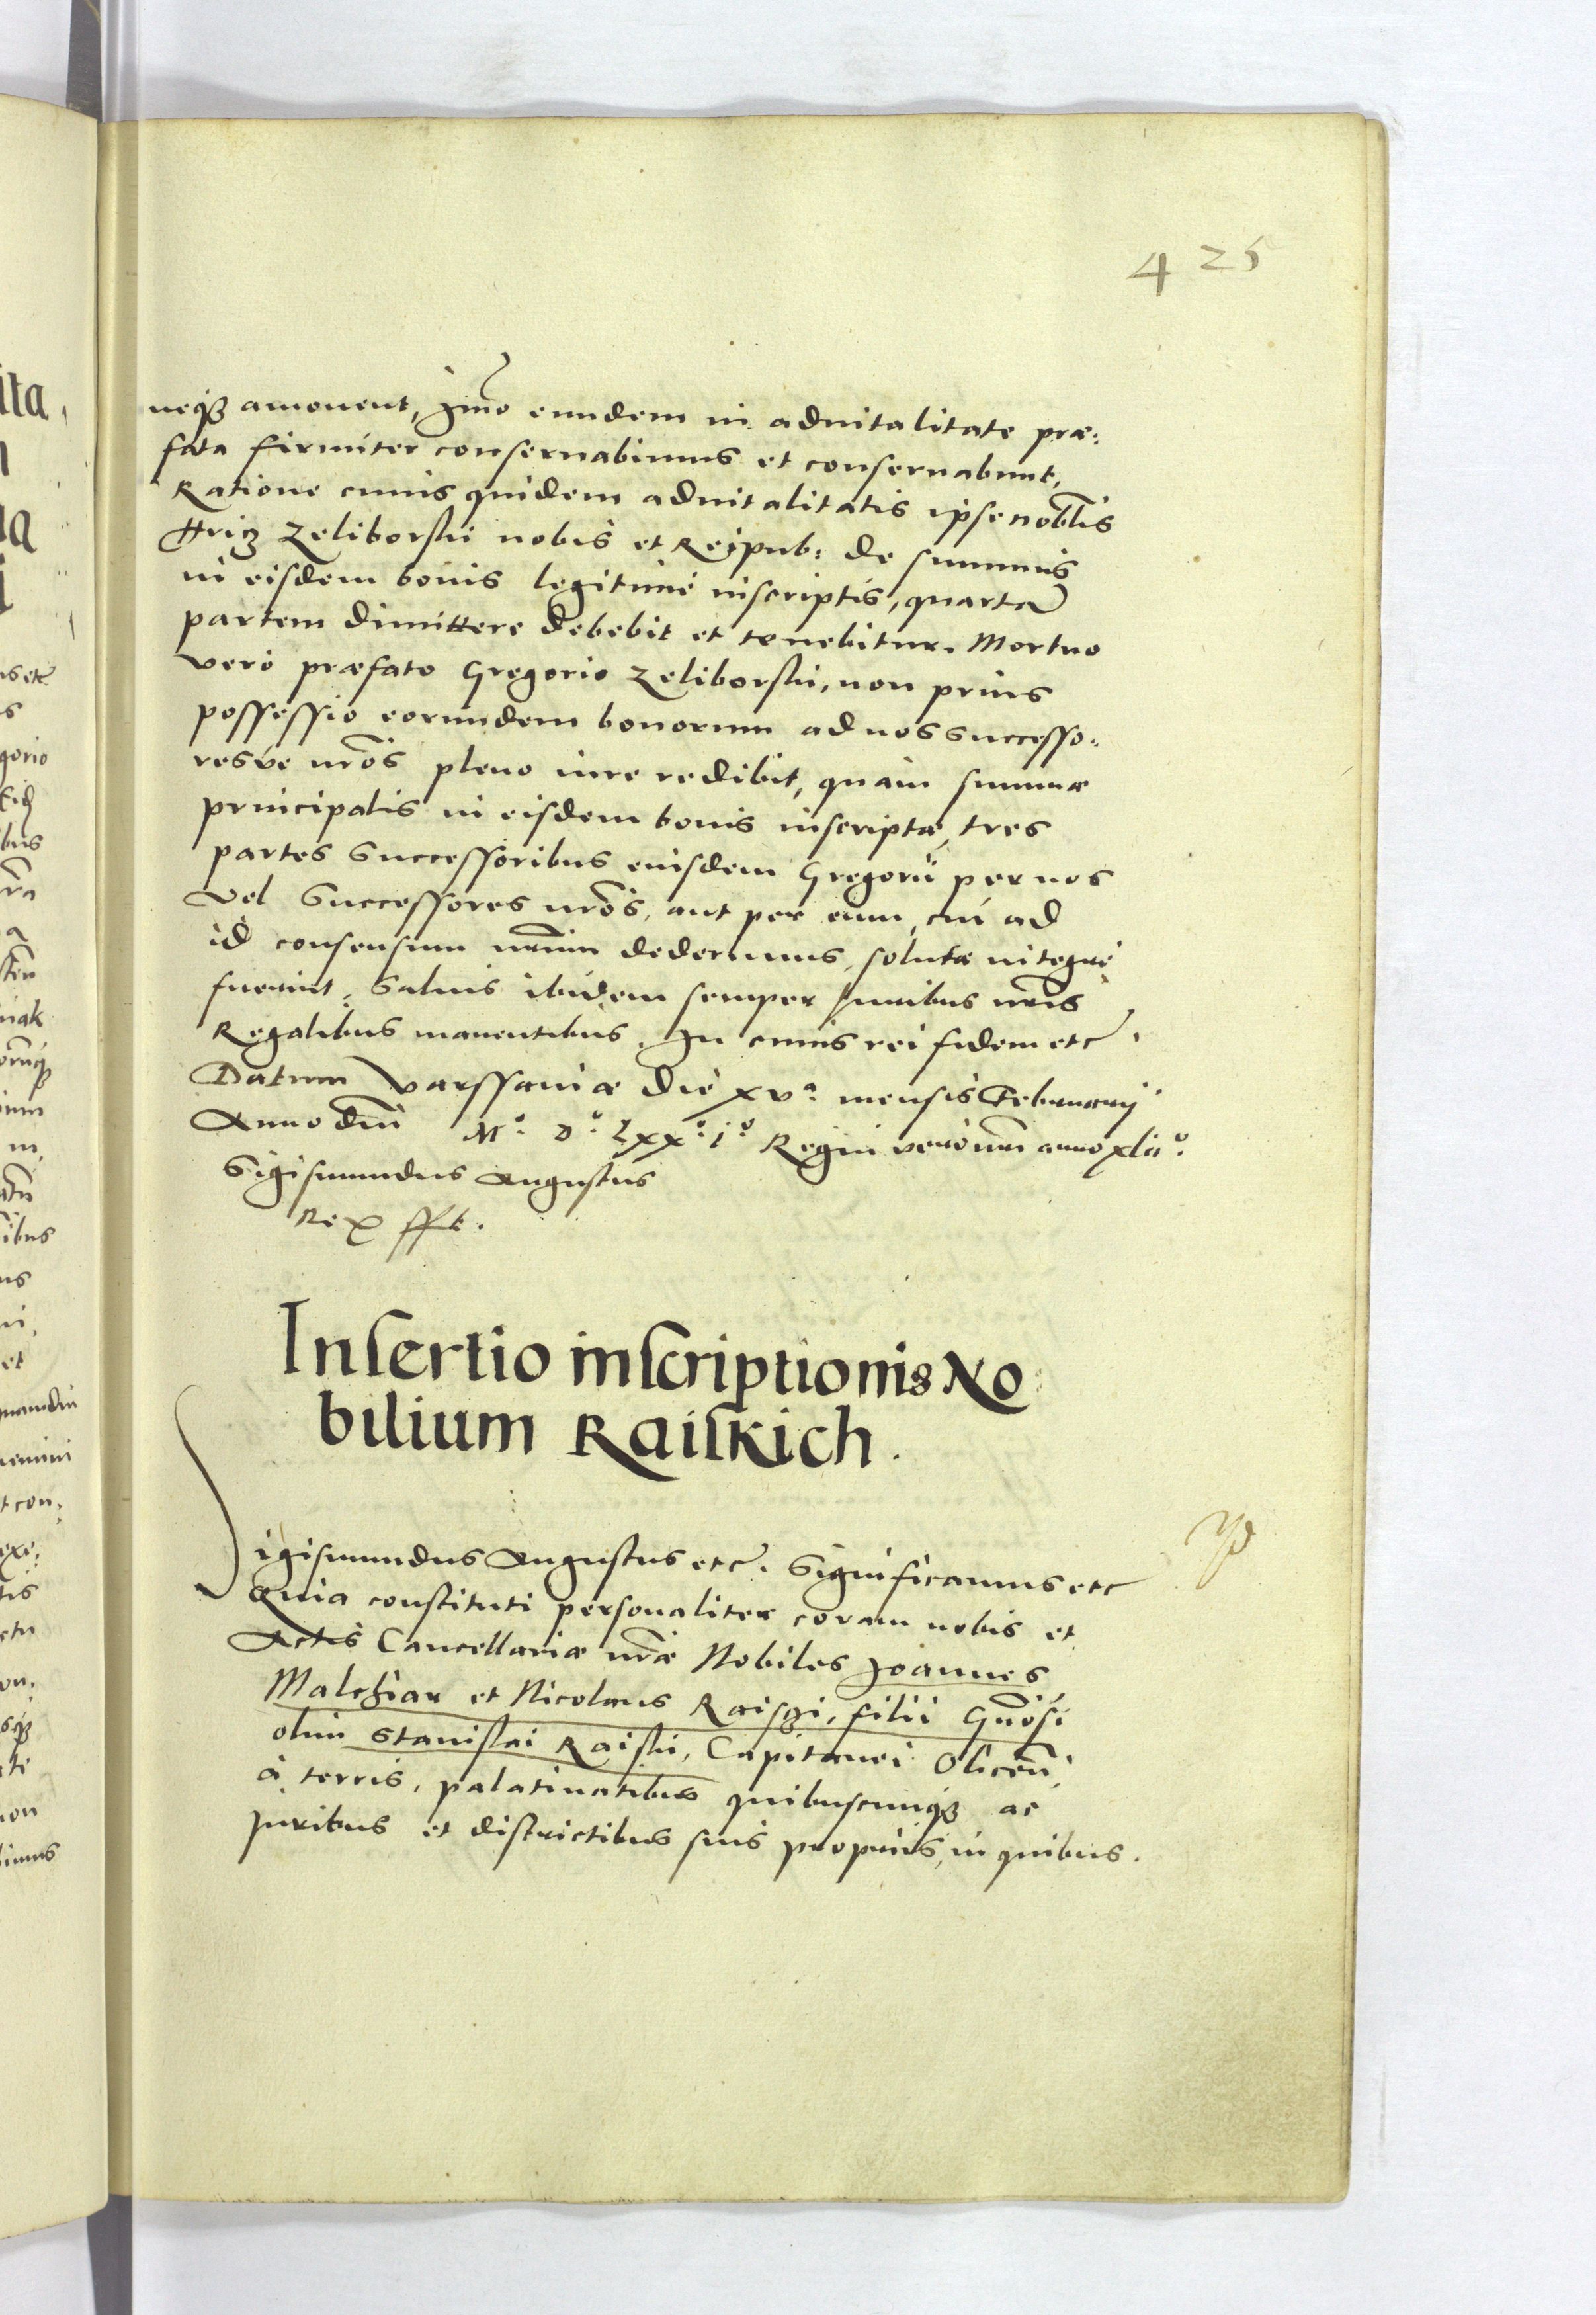 425
neq3 amouent, Imo eundem in aduitalitate præ:
fata firmiter conseruabimus et conseruabunt,
Ratione cuius quidem aduitalitatis ipse noblis
Hricz Zeliborski nobis et Reipub: de summis
in eisdem bonis legitimè inscriptis, quartã
partem dimittere debebit et tenebitur. Mortuo
verò præfato Gregorio Zeliborski, non prius
possessio eorundem bonorum ad nos successo:
resvè nrõs pleno iure redibit, quàm summæ
principalis in eisdem bonis inscriptæ, tres
partes successoribus eiusdem Gregorii per nos
vel Successores nrõs, aut per eum, cui ad
id consensum nrũm dederimus, solutæ integrè
fuerint, Saluis ibidem semper Iuribus nrĩs
Regalibus manentibus. In cuius rei fidem etc.
Datum Varssauiæ die xvª mensis Februarij
Anno dni Mº Dº Lxxº iº Regni verò nri anno xliiº.
Sigismundus Augustus
Rex sst.
Insertio inscriptionis No
bilium Raiskich.
Sigismundus Augustus etc. Significamus etc
Quia constituti personaliter coram nobis et
Actis Cancellariæ nræ Nobiles Joannes
Malchiar et Nicolaus Raisczi, filii Gnõsi
olim Stanislai Raiski, Capitanei Olicen̄,
à terris, palatinatibus quibuscunq3 ac
Iuribus et districtibus suis proprijs, in quibus.